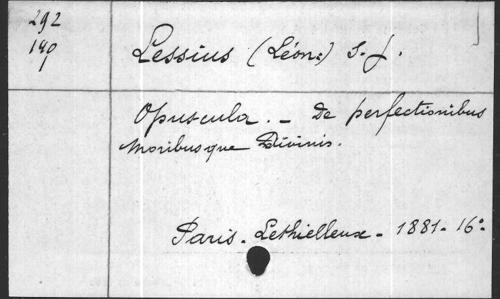 292
190
1
Lessius (Léon:) S. J.
Opuscula. - De perfectionibus
Moribusque Divinis.
Paris. Lethielleux - 1881 - 16°